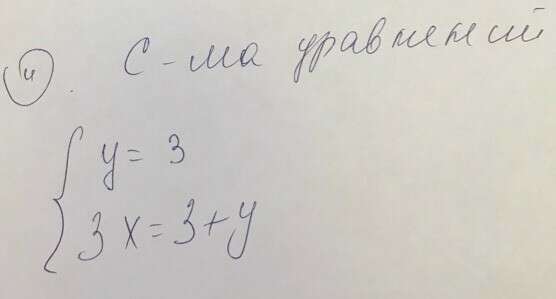 4. С-ма уравнений
y = 3
3x = 3 + y